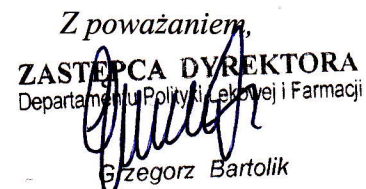 Z poważaniem,
ZASTĘPCA DYREKTORA
Departamentu Polityki Lekowej i Farmacji
Grzegorz Bartolik